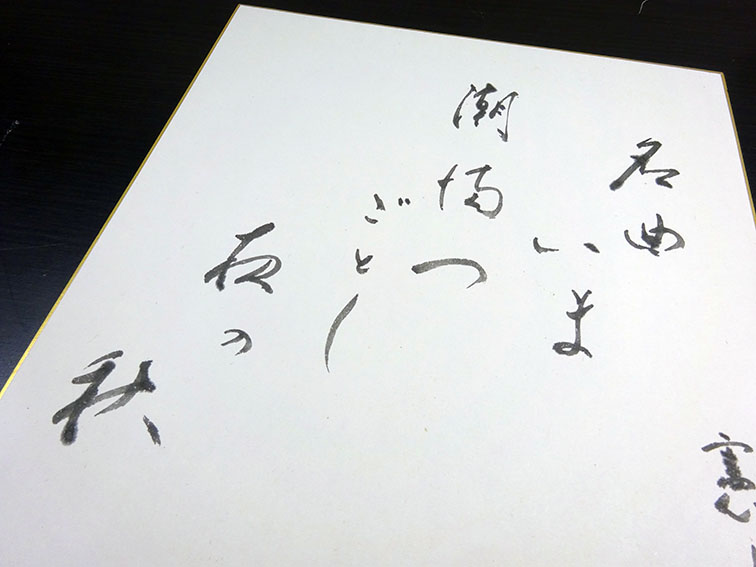 名曲
いま
潮満つ
ごとし
夜の
秋
憲